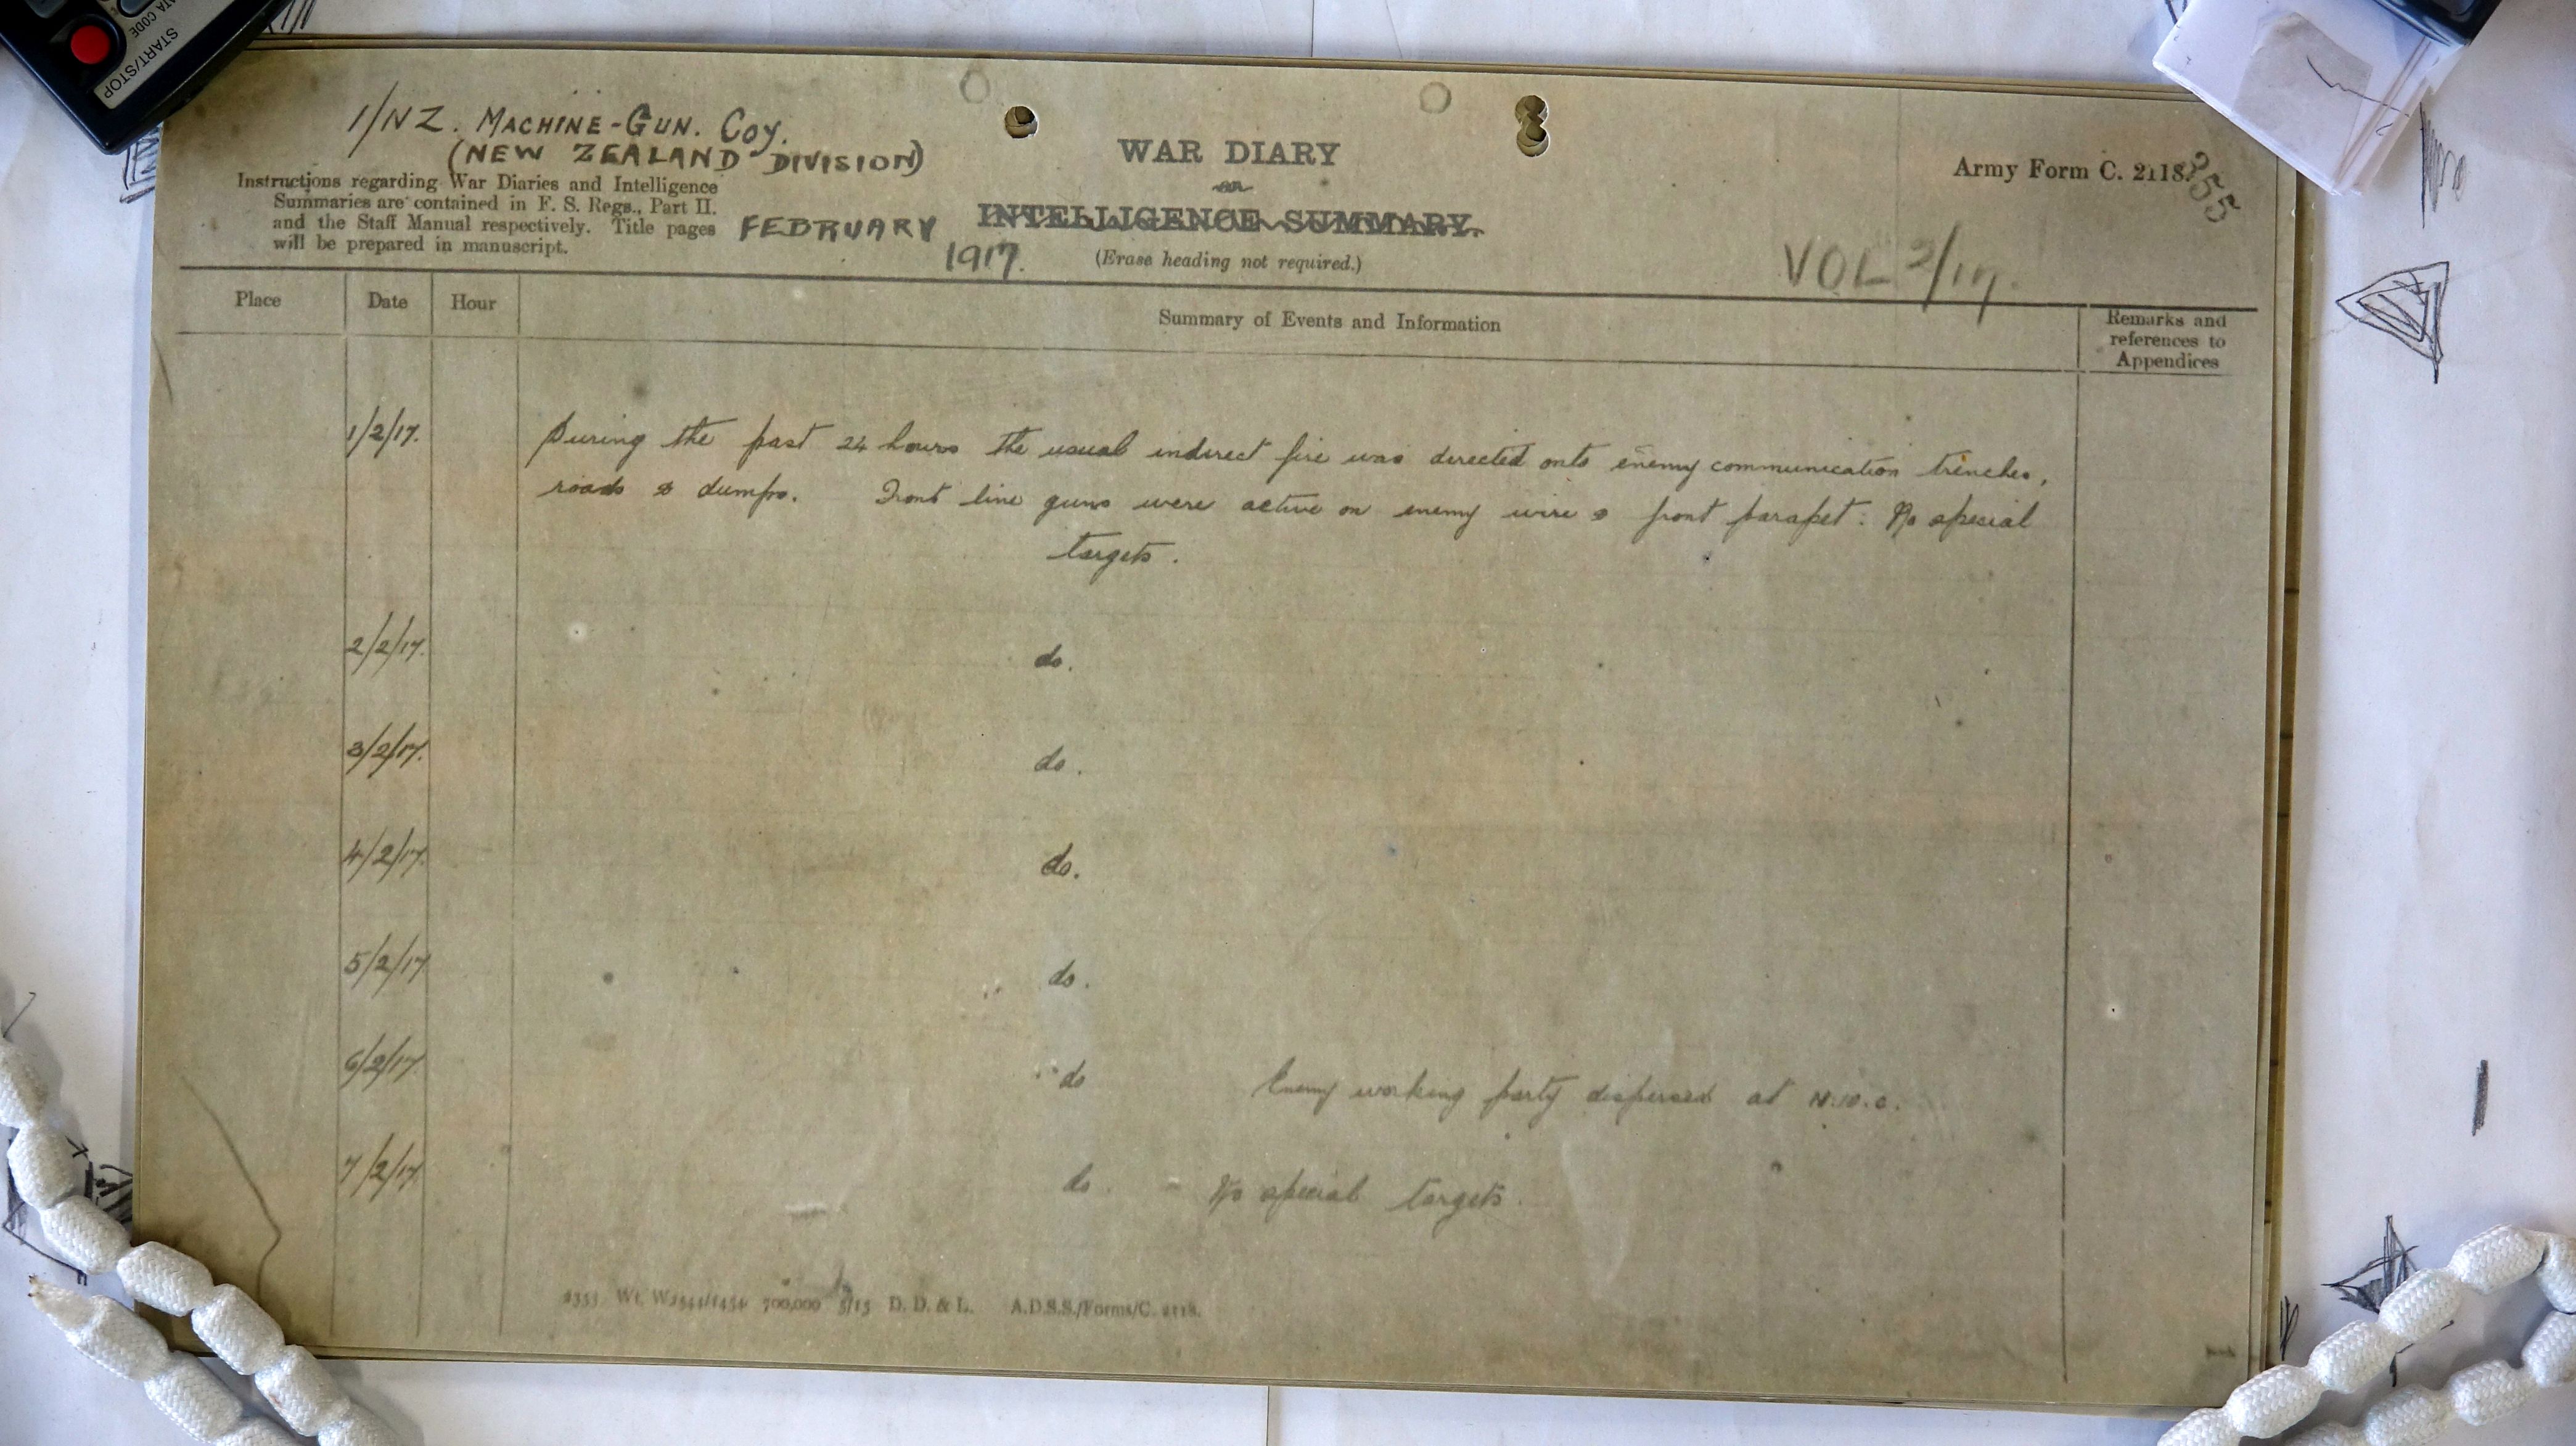 START/STOP
DATA CODE
1/NZ. MACHINE-GUN. Coy.
(NEW ZEALAND DIVISION)
Instructions regarding War Diaries and Intelligence
Summaries are contained in F. S. Regs., Part II.
and the Staff Manual respectively. Title pages
will be prepared in manuscript.
FEBRUARY
1917.
WAR DIARY
or
INTELLIGENCE SUMMARY.
(Erase heading not required.)
Army Form C. 2118.
355
VOL 2/17.
Place Date Hour Summary of Events and Information Remarks and
references to
Appendices
1/2/17. During the past 24 hours the usual indirect fire was directed onto enemy communication trenches,
roads & dumps. Front line guns were active on enemy wire & front parapet. No special
targets.
2/2/17. do.
3/2/17. do.
4/2/17. do.
5/2/17 do.
6/2/17. do Enemy working party dispersed at N.10.c.
7/2/17. do. - No special targets.
2353 Wt. 700,000 5/15 D. D. & L. A.D.S.S./Forms/C. 2118.